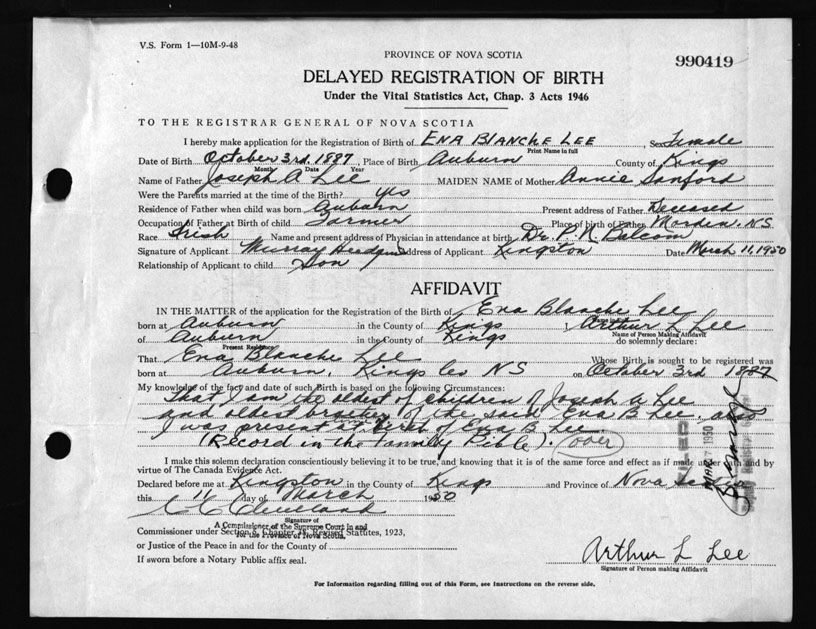 V.S. Form 1—10M-9-48
PROVINCE OF NOVA SCOTIA
990419
DELAYED REGISTRATION OF BIRTH
Under the Vital Statistics Act, Chap. 3 Acts 1946
TO THE REGISTRAR GENERAL OF NOVA SCOTIA
I hereby make application for the Registration of Birth of ENA BLANCHE LEE, Sex Female
Print Name in full
Date of Birth October 3rd, 1887, Place of Birth Auburn County of Kings
Month Date Year
Name of Father Joseph A Lee MAIDEN NAME of Mother Annie Sanford
Were the Parents married at the time of the Birth? yes
Residence of Father when child was born Auburn Present address of Father Deceased
Occupation of Father at Birth of child Farmer Place of birth of Father Morden. N.S
Race Irish Name and present address of Physician in attendance at birth Dr. P. N. Balcom
Signature of Applicant Murray Address of Applicant Kingston Date March 11, 1950
Relationship of Applicant to child Son
AFFIDAVIT
IN THE MATTER of the application for the Registration of the Birth of Ena Blanche Lee
born at Auburn in the County of Kings I, Arthur L Lee
Name of Person Making Affidavit
of Auburn in the County of Kings do solemnly declare:
Present Residence
That Ena Blanche Lee Whose Birth is sought to be registered was
born at Auburn, Kings Co NS on October 3rd 1887
My knowledge of the fact and date of such Birth is based on the following Circumstances:
That I am the oldest of children of Joseph A Lee
and oldest brother of the said Ena B Lee. also
I was present at birth of Ena B Lee
(Record in the Family Bible). (over)
I make this solemn declaration conscientiously believing it to be true, and knowing that it is of the same force and effect as if made under oath and by
virtue of The Canada Evidence Act.
Declared before me at Kingston in the County of Kings and Province of Nova Scotia
this 11 day of March 1950
C C Cleveland
Signature of
A Commissioner of the Supreme Court in and
for the Province of Nova Scotia
Commissioner under Section 8, Chapter 48, Revised Statutes, 1923,
or Justice of the Peace in and for the County of
If sworn before a Notary Public affix seal.
FILED
MAR 7 1950
Arthur L Lee
Signature of Person making Affidavit
For Information regarding filling out of this Form, see Instructions on the reverse side.